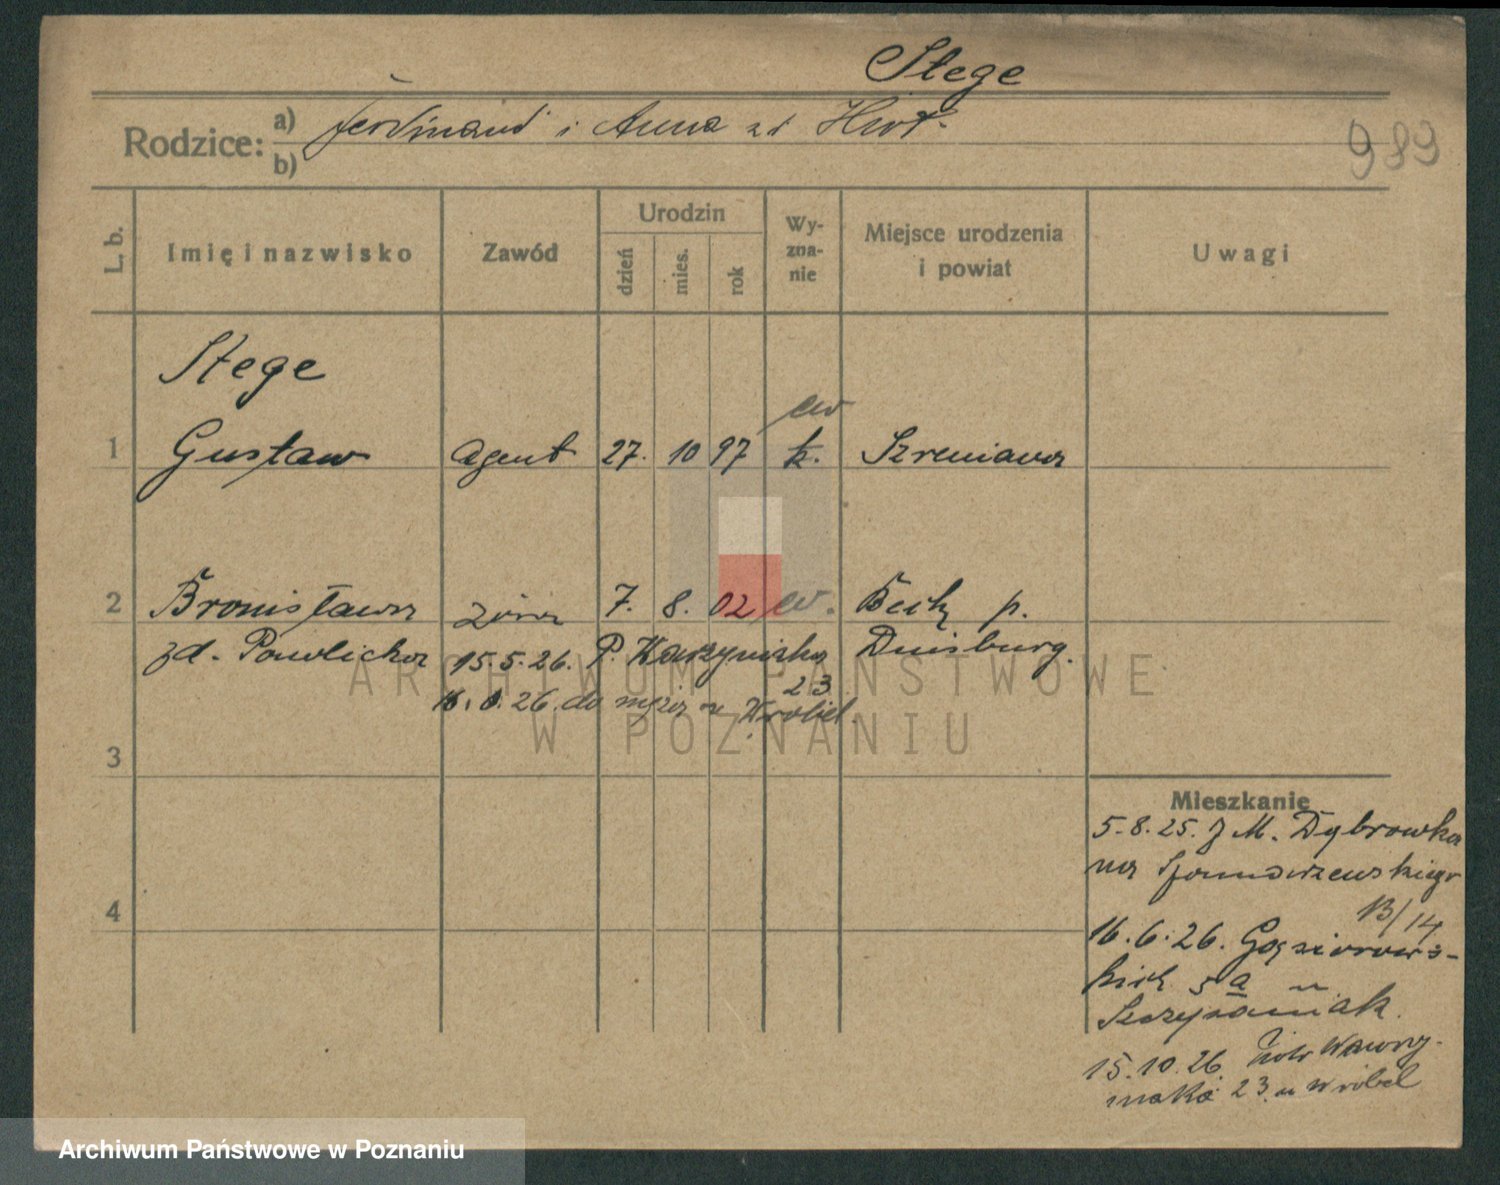 Stege
Rodzice: a) Ferdinand i Anna zd
b)
989
L. b.
Imię i nazwisko
Zawód
Urodzin
dzień
mies.
rok
Wy-
zna-
nie
Miejsce urodzenia
i powiat
Uwagi
Stege
ew
1 Gustaw agent 27. 10 97 k. Szreniawa
2 Bronisława żona 7. 8. 02 ew. Beck p.
zd. Pawlicka 15.5.26. P. Duisburg.
23
26. do męża u Wróbel.
3
4
Mieszkanie
5.8.25. J M. Dąbrowka
na
13/14
16.6.26. Gąsiorows-
kich 5 a u
Szczyszaniak.
15.10.26. Piotr Wawrzy-
niaka 23. u Wróbel
ARCHIWUM PAŃSTWOWE
W POZNANIU
Archiwum Państwowe w Poznaniu